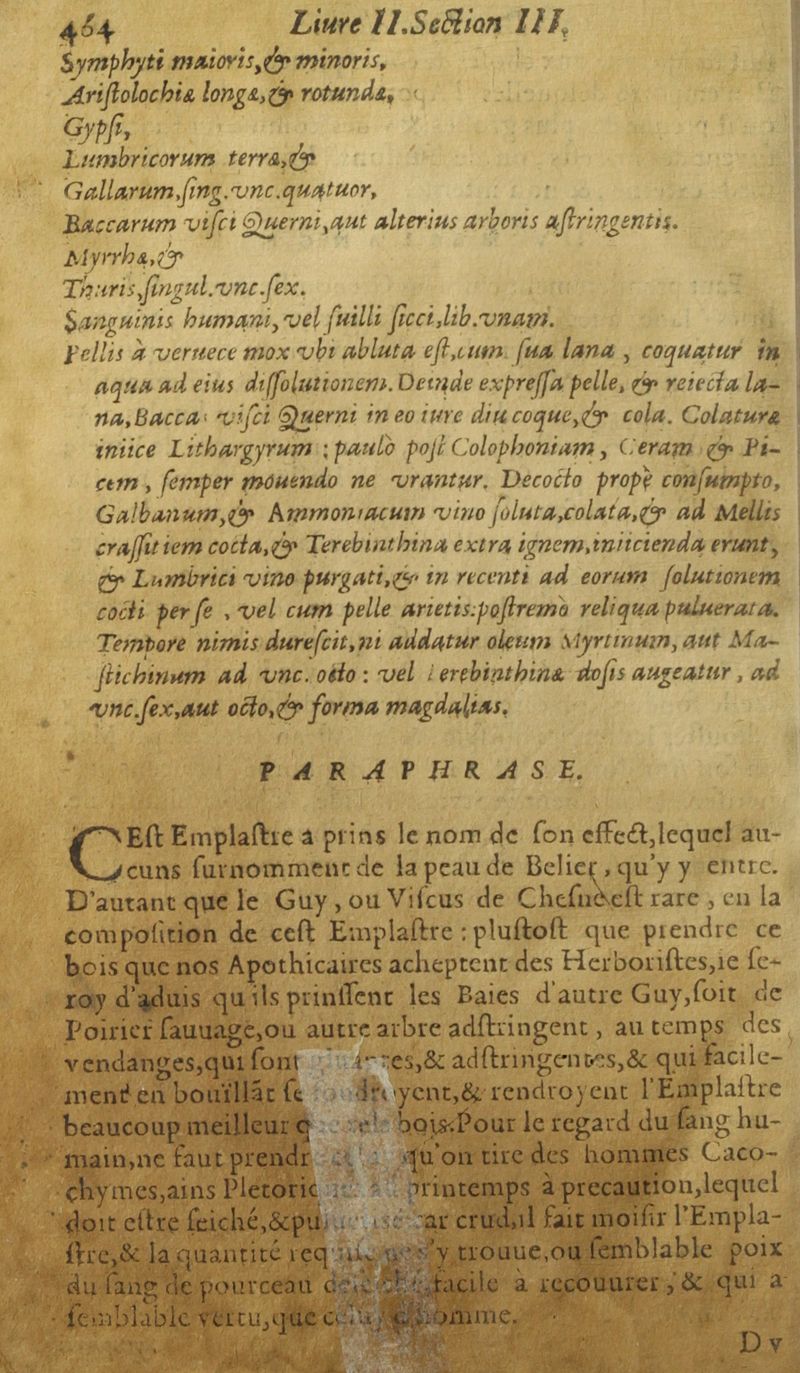 464 Liure II. Section III.
Symphyti maioris, & minoris,
Aristolochiæ longæ, & rotundæ,
Gypsi,
Lumbricorum terræ, &
Gallarum, sing. vnc. quatuor,
Baccarum visci Querni, aut alterius arboris astringentis.
Myrrhæ, &
Thuris, singul. vnc. sex.
Sanguinis humani, vel suilli sicci, lib. vnam.
Pellis à veruece mox vbi abluta est, cum sua lana, coquatur in
aqua ad eius dissolutionem. Deinde expressa pelle, & reiecta la-
na, Baccas visci Querni in eo iure diu coque, & cola. Colaturæ
iniice Lithargyrum; paulò post Colophoniam, Ceram & Pi-
cem, semper mouendo ne vrantur. Decocto propè consumpto,
Galbanum, & Ammoniacum vino soluta, colata, & ad Mellis
crassitiem cocta, & Terebinthina extra ignem, iniicienda erunt,
& Lumbrici vino purgati, & in recenti ad eorum solutionem
cocti per se, vel cum pelle arietis: postremò reliqua puluerata.
Tempore nimis durescit, ni addatur oleum Myrtinum, aut Ma-
stichinum ad vnc. octo: vel Terebinthinæ dosis augeatur, ad
vnc. sex, aut octo, & forma magdalias.
PARAPHRASE.
CEst Emplastre a prins le nom de son effect, lequel au-
cuns surnomment de la peau de Belier, qu'y y entre.
D'autant que le Guy, ou Viscus de Chesne est rare, en la
composition de cest Emplastre: plustost que prendre ce
bois que nos Apothicaires acheptent des Herboristes, ie se-
roy d'aduis qu'ils prinssent les Baies d'autre Guy, soit de
Poirier sauuage, ou autre arbre adstringent, au temps des
vendanges, qui sont & adstringentes, & qui facile-
ment en bouïllāt se & rendroyent l'Emplastre
beaucoup meilleur bois. Pour le regard du sang hu-
main, ne faut prendr qu'on tire des hommes Caco-
chymes, ains Pletoric printemps à precaution, lequel
doit estre seiché, & car crud, il fait moisir l'Empla-
stre, & la quantité y trouue, ou semblable poix
du sang de pourceau facile à recouurer, & qui a
semblable vertu, que homme.
D v